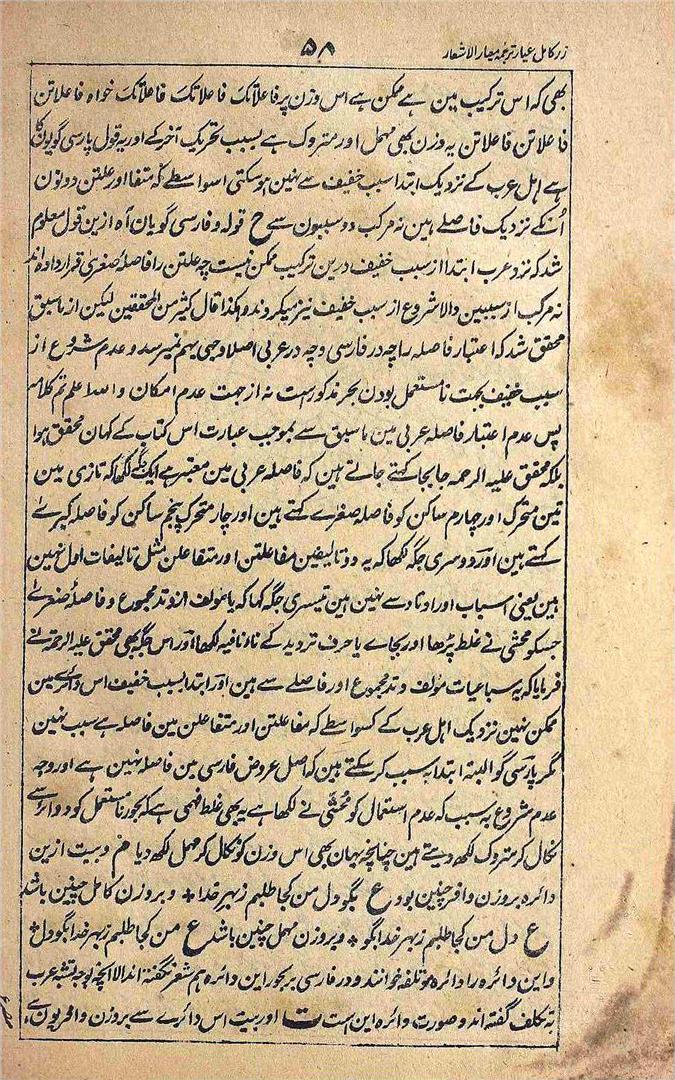 زر کامل عیار ترجمہ معیار الاشعار
۵۸
بھی کہ اس ترکیب مین ہے ممکن ہے اس وزن پر فاعلاتک فاعلاتک فاعلاتک خواہ فاعلاتن
فاعلاتن فاعلاتن یہ وزن بھی مہمل اور متروک ہے بسبب تحریک آخر کے اور یہ قول پارسی گویون کا
ہے اہل عرب کے نزدیک ابتدا سبب خفیف سے نہین ہو سکتی اسواسطے کہ متفا اور علتن دونون
اُنکے نزدیک فاصلے ہین نہ مرکب دو سببون سے ح قولہ و فارسی گویان آہ ازین قول معلوم
شد کہ نزد عرب ابتدا از سبب خفیف درین ترکیب ممکن نیست چہ علتن را فاصلۂ صغری قرار داده اند
نہ مرکب از سببین والا شروع از سبب خفیف نیز میکروند و ہکذا قال کثیر من المحققین لیکن از ما سبق
محقق شد کہ اعتبار فاصلہ را چہ در فارسی و چہ در عربی اصلا وجہی بہم نمیرسد و عدم شروع از
سبب خفیف بجہت نا مستعمل بودن بحر مذکور ست نہ از جہت عدم امکان واللہ اعلم تم کلامہ
پس عدم اعتبار فاصلہ عربی مین ما سبق سے بموجب عبارت اس کتاب کے کہان محقق ہوا
بلکہ محقق علیہ الرحمہ جا بجا کہتے جاتے ہین کہ فاصلہ عربی مین معتبر ہے ایک جگہ لکھا کہ تازی مین
تین متحرک اور چہارم ساکن کو فاصلہ صغرے کہتے ہین اور چار متحرک پنجم ساکن کو فاصلہ کبرے
کہتے ہین اور دوسری جگہ لکھا کہ یہ دو تالیفین مفاعلتن اور متفاعلن مثل تالیفات اول نہین
ہین یعنی اسباب اور اوتاد سے نہین ہین تیسری جگہ کہا کہ یا مولف از وتد مجموع و فاصلۂ صغرے
جسکو محشی نے غلط پڑھا اور بجاے یا حرف تردید کے تاء نافیہ لکھا اور اس جگہ بھی محقق علیہ الرحمہ نے
فرمایا کہ یہ سباعیات مؤلف وتد مجموع اور فاصلے سے ہین اور ابتدا بسبب خفیف اس دائرے مین
ممکن نہین نزدیک اہل عرب کے کسواسطے کہ مفاعلتن اور متفاعلن مین فاصلہ ہے سبب نہین
مگر پارسی گو البتہ ابتدا بہ سبب کر سکتے ہین کہ اصل عروض فارسی مین فاصلہ نہین ہے اور وجہ
عدم شروع بہ سبب کہ عدم استعمال کو محشی نے لکھا ہے یہ بھی غلط فہمی ہے کہ بحور نا مستعمل کو دوائر سے
نکال کر متروک لکھ دیتے ہین چنانچہ یہان بھی اس وزن کو نکال کر مہمل لکھدیا م و بیت ازین
دائرہ بر وزن وافر چنین بود ع بگو دل من کجا طلبم ز بہر خدا ٭ و بر وزن کامل چنین باشد
ع دل من کجا طلبم ز بہر خدا بگو ٭ و بر وزن مہمل چنین باشد ع من کجا طلبم ز بہر خدا بگو دل ٭
و این دائرہ را دائرہ مؤتلفہ خوانند و در فارسی بر بحور این دائرہ ہم شعر نگفتہ اند الا آنچہ بوجہ تشبہ بعرب
بہ تکلف گفتہ اند و صورت دائرہ این ست ت اور بیت اس دائرے سے بر وزن وافر یون ہے